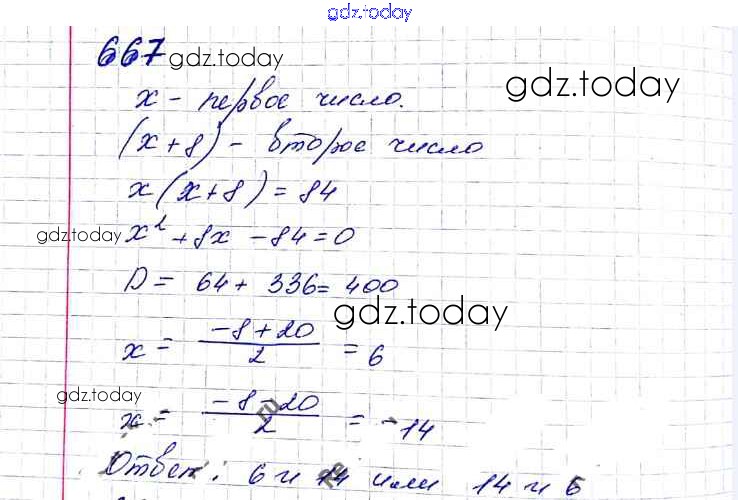 gdz.today
667 gdz.today
gdz.today
x - первое число.
(x+8) - второе число
x(x+8) = 84
gdz.today x² + 8x - 84 = 0
D = 64 + 336 = 400
gdz.today
x = (-8+20)/2 = 6
gdz.today
x = (-8-20)/2 = -14
Ответ: 6 и 14 или 14 и 6